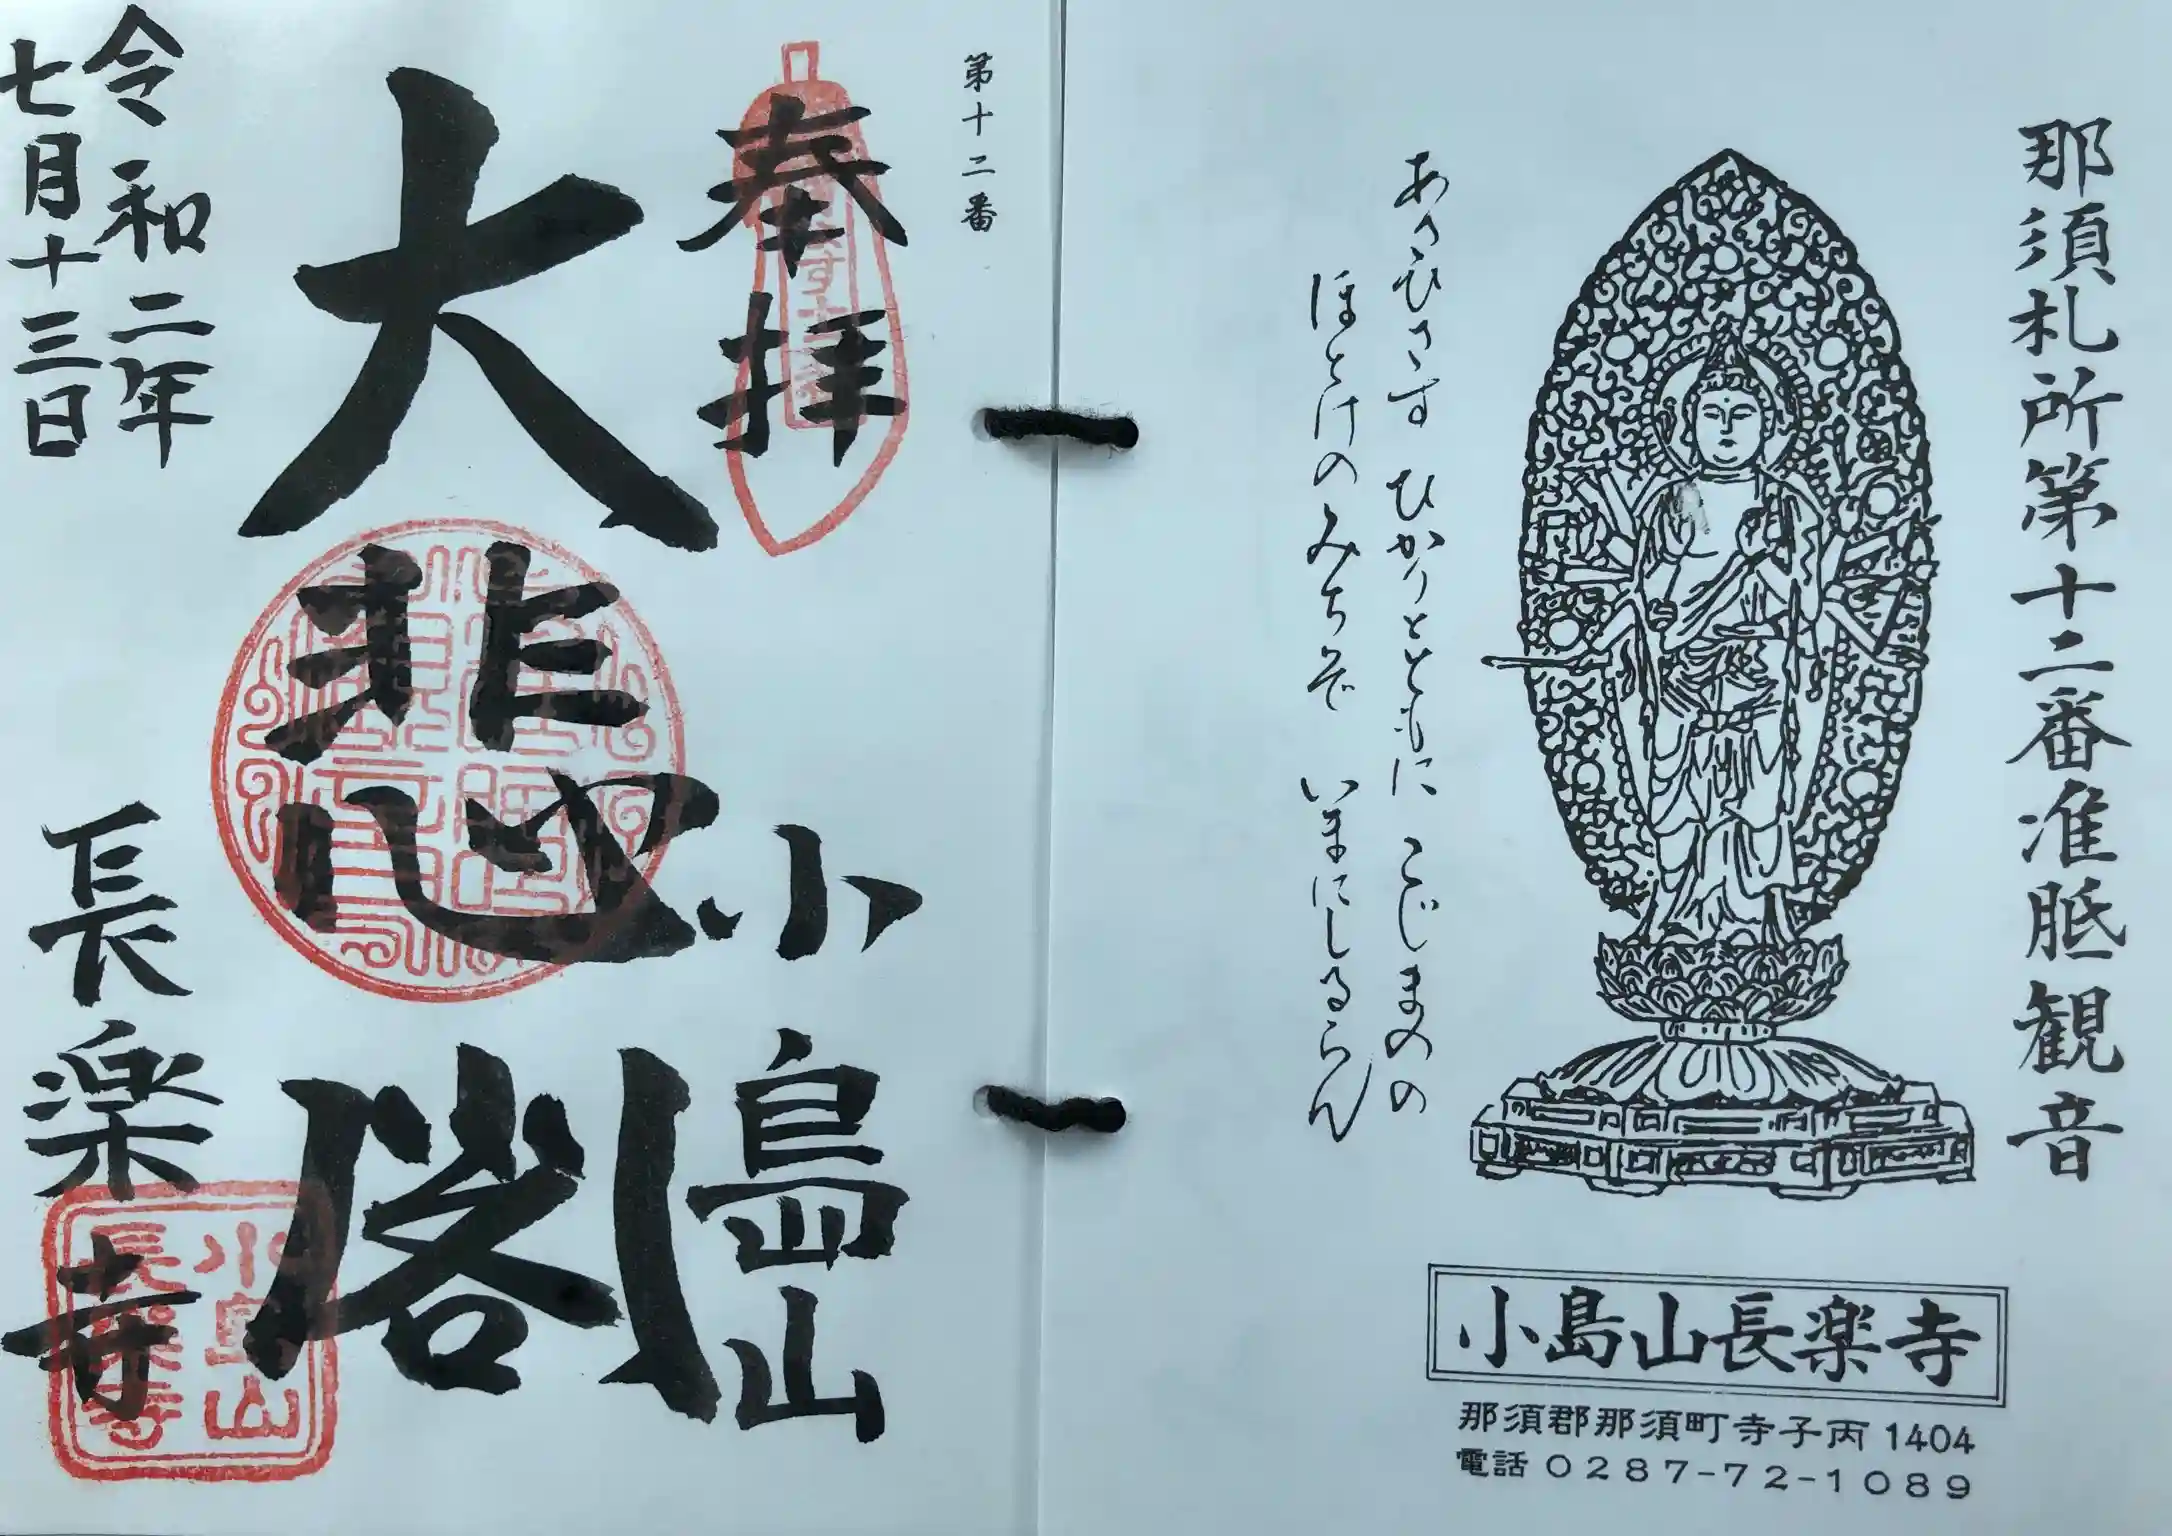 那須札所第十二番准胝観音
あさひさす ひかりとともに こじまの
ほとけのみちぞ いまにしるらん
小島山長楽寺
那須郡那須町寺子丙1404
電話0287-72-1089
第十二番
奉拝
小島山
大悲閣
長楽寺
令和二年
七月十三日
小島山
長楽寺